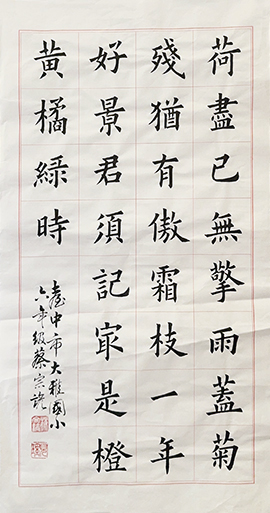 荷盡已無擎雨蓋菊
殘猶有傲霜枝一年
好景君須記冣是橙
黃橘綠時
臺中市大雅國小
六年級蔡宗